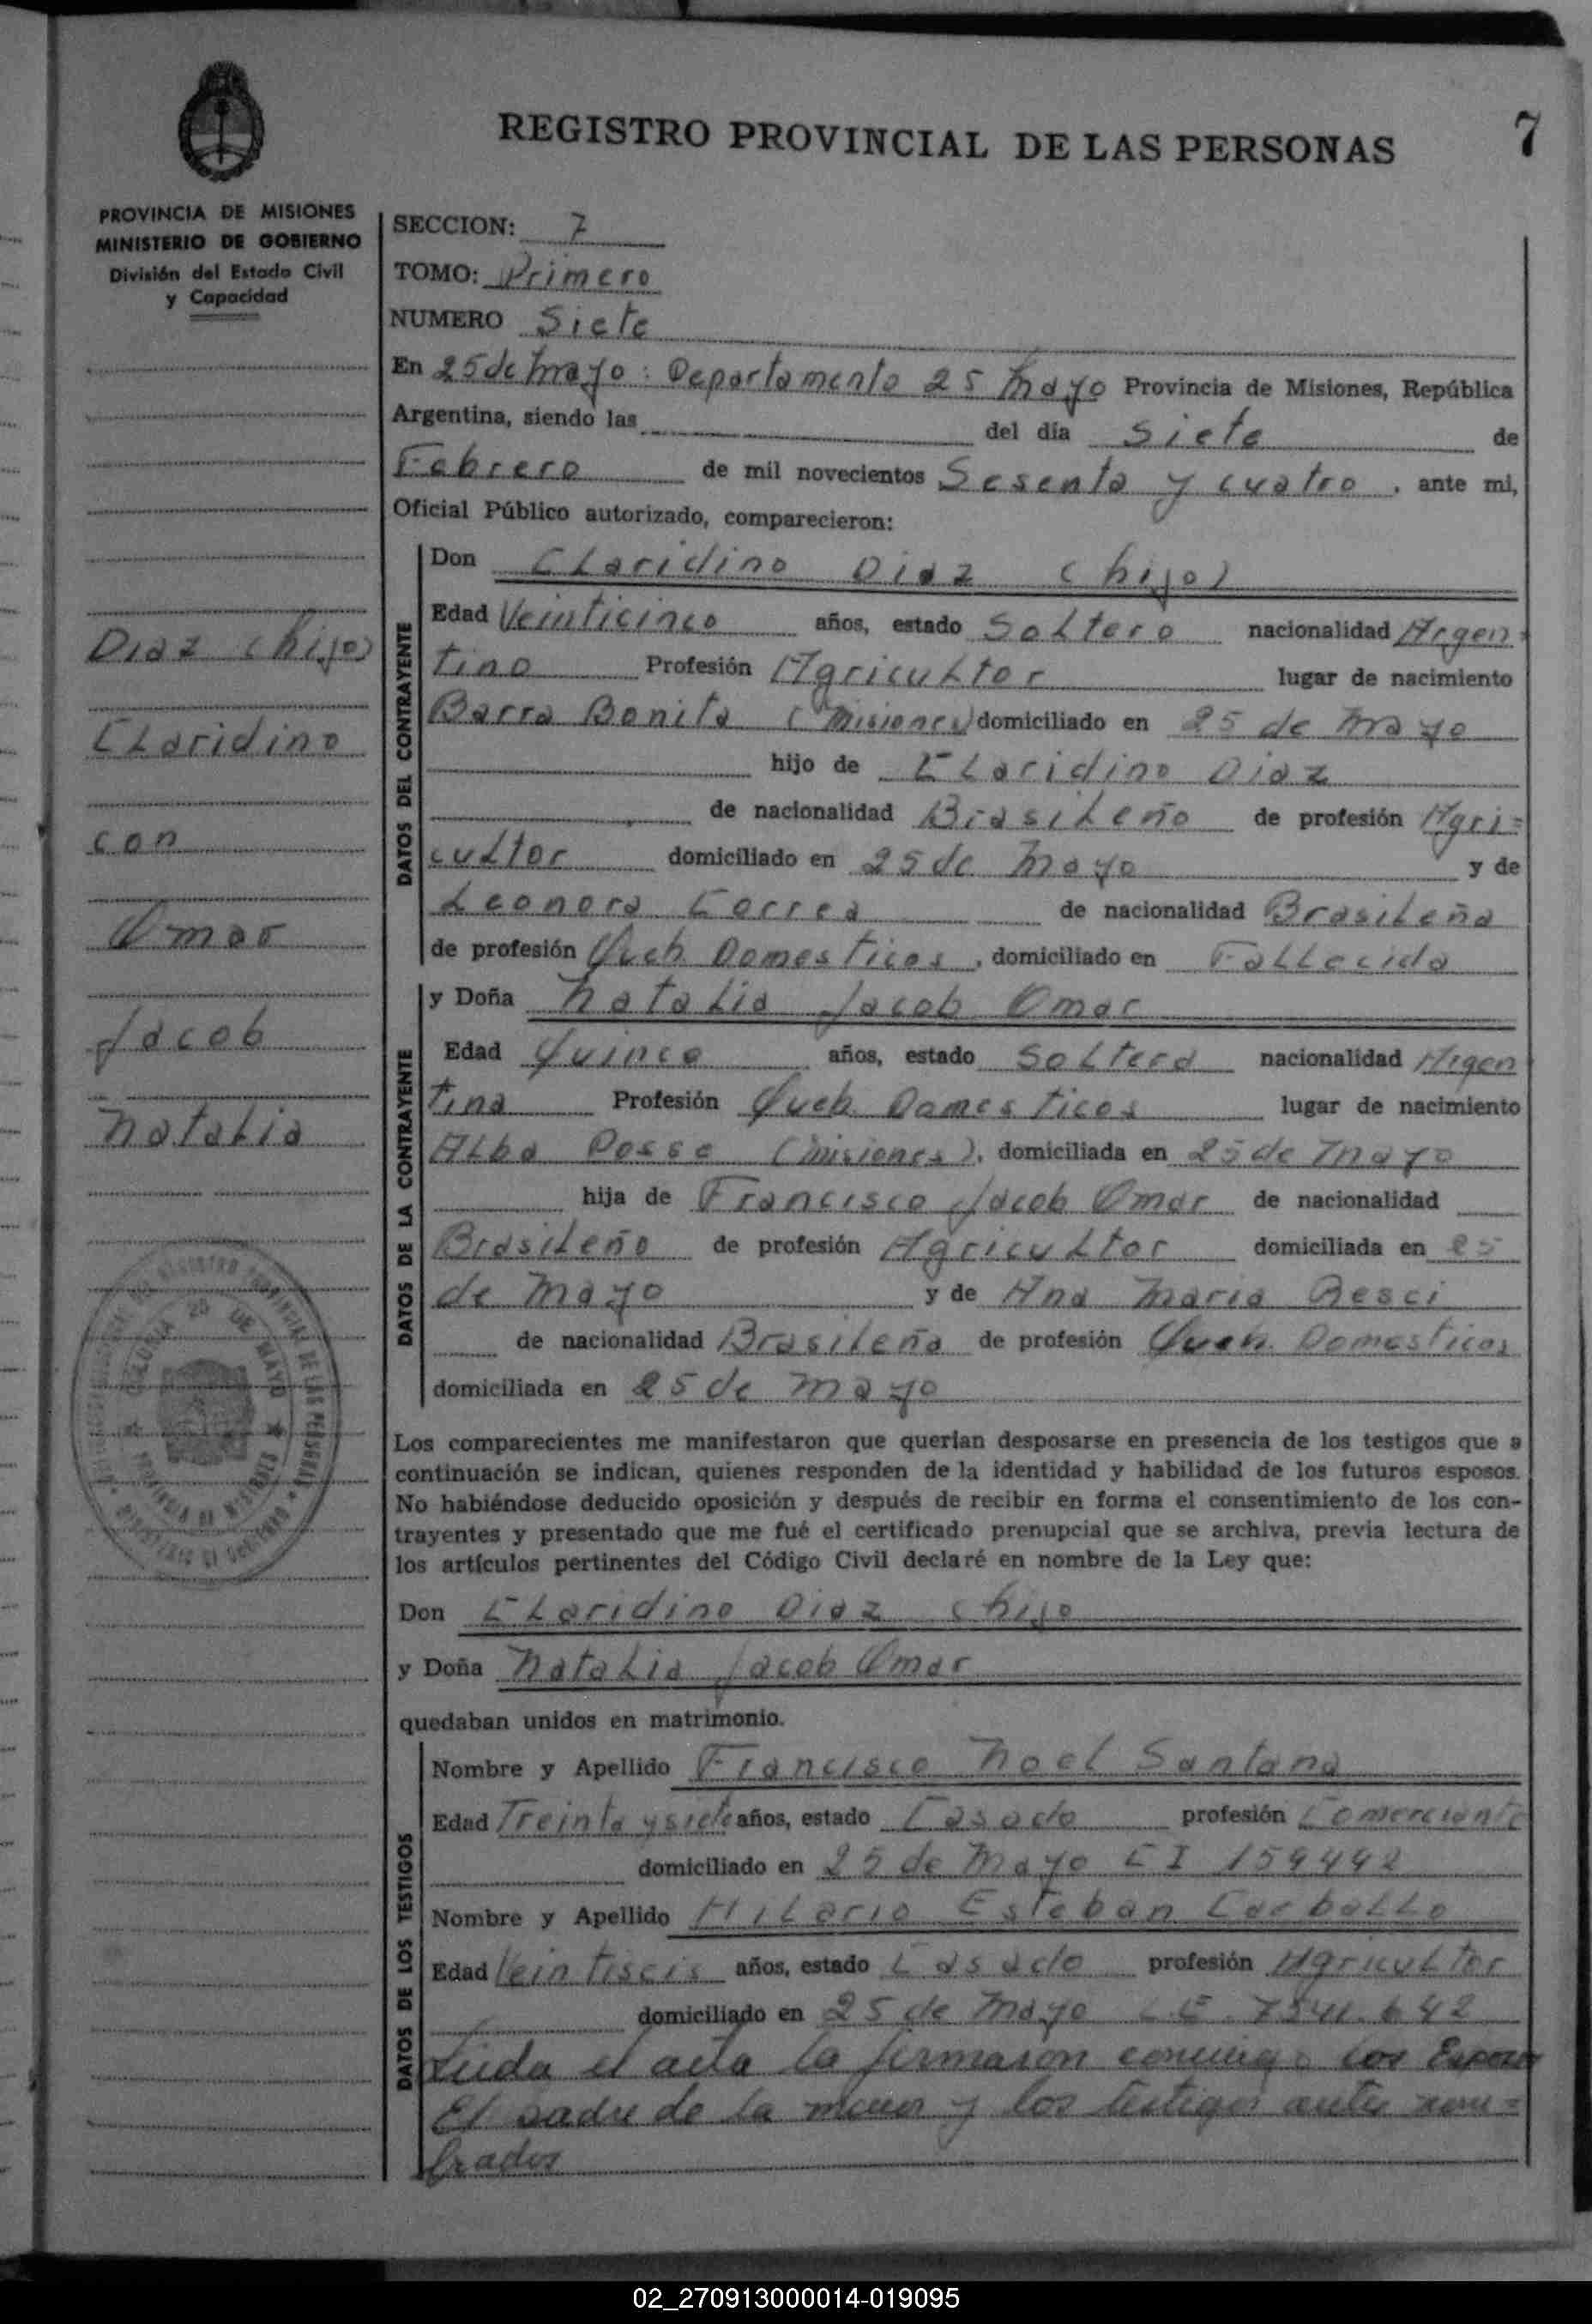 REGISTRO PROVINCIAL DE LAS PERSONAS
7
PROVINCIA DE MISIONES
MINISTERIO DE GOBIERNO
División del Estado Civil
y Capacidad
SECCION: 7
TOMO: Primero
NUMERO Siete
En 25 de Mayo: Departamento 25 Mayo Provincia de Misiones, República
Argentina, siendo las del día Siete de
Febrero de mil novecientos Sesenta y cuatro, ante mi,
Oficial Público autorizado, comparecieron:
Diaz (hijo)
Claridino
con
Omar
Jacob
Natalia
DATOS DEL CONTRAYENTE
Don Claridino Diaz (hijo)
Edad Veinticinco años, estado Soltero nacionalidad Argen=
tino Profesión Agricultor lugar de nacimiento
Barra Bonita (Misiones) domiciliado en 25 de Mayo
hijo de Claridino Diaz
de nacionalidad Brasileño de profesión Agri=
cultor domiciliado en 25 de Mayo y de
Leonora Correa de nacionalidad Brasileña
de profesión Queh Domesticos, domiciliado en Fallecida
DATOS DE LA CONTRAYENTE
y Doña Natalia Jacob Omar
Edad Quince años, estado Soltera nacionalidad Argen
tina Profesión Queh Domesticos lugar de nacimiento
Alba Posse (Misiones), domiciliada en 25 de Mayo
hija de Francisco Jacob Omar de nacionalidad
Brasileño de profesión Agricultor domiciliada en 25
de Mayo y de Ana Maria Resci
de nacionalidad Brasileña de profesión Queh. Domesticos
domiciliada en 25 de Mayo
COLONIA 25 DE MAYO
PROVINCIA DE MISIONES
Los comparecientes me manifestaron que querían desposarse en presencia de los testigos que a
continuación se indican, quienes responden de la identidad y habilidad de los futuros esposos.
No habiéndose deducido oposición y después de recibir en forma el consentimiento de los con-
trayentes y presentado que me fué el certificado prenupcial que se archiva, previa lectura de
los artículos pertinentes del Código Civil declaré en nombre de la Ley que:
Don Claridino Diaz (hijo
y Doña Natalia Jacob Omar
quedaban unidos en matrimonio.
DATOS DE LOS TESTIGOS
Nombre y Apellido Francisco Noel Santana
Edad Treinta y siete años, estado Casado profesión Comerciante
domiciliado en 25 de Mayo CI 159492
Nombre y Apellido Hilario Esteban Carballo
Edad Veintiseis años, estado Casado profesión Agricultor
domiciliado en 25 de Mayo L.E. 7541.642
Leida el acta la firmaron conmigo los Esposos
El padre de la menor y los testigos antes nom=
brados
02_270913000014-019095